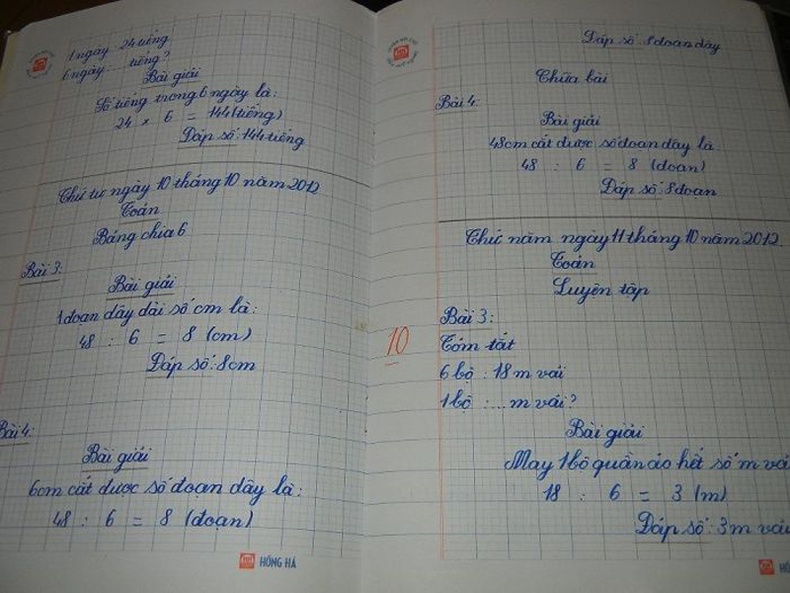 1 ngày : 24 tiếng
6 ngày: .... tiếng?
Bài giải
Số tiếng trong 6 ngày là:
24 × 6 = 144 (tiếng)
Đáp số: 144 tiếng
Thứ tư ngày 10 tháng 10 năm 2012
Toán
Bảng chia 6
Bài 3:
Bài giải
1 đoạn dây dài số cm là:
48 : 6 = 8 (cm)
Đáp số: 8cm
Bài 4:
Bài giải
6cm cắt được số đoạn dây là:
48 : 6 = 8 (đoạn)
HỒNG HÀ
Đáp số: 8 đoạn dây
Chữa bài
Bài 4:
Bài giải
48cm cắt được số đoạn dây là
48 : 6 = 8 (đoạn)
Đáp số: 8 đoạn
Thứ năm ngày 11 tháng 10 năm 2012
Toán
Luyện tập
10
Bài 3:
Tóm tắt
6 bộ : 18 m vải
1 bộ : ... m vải?
Bài giải
May 1 bộ quần áo hết số m vả
18 : 6 = 3 (m)
Đáp số: 3m vải